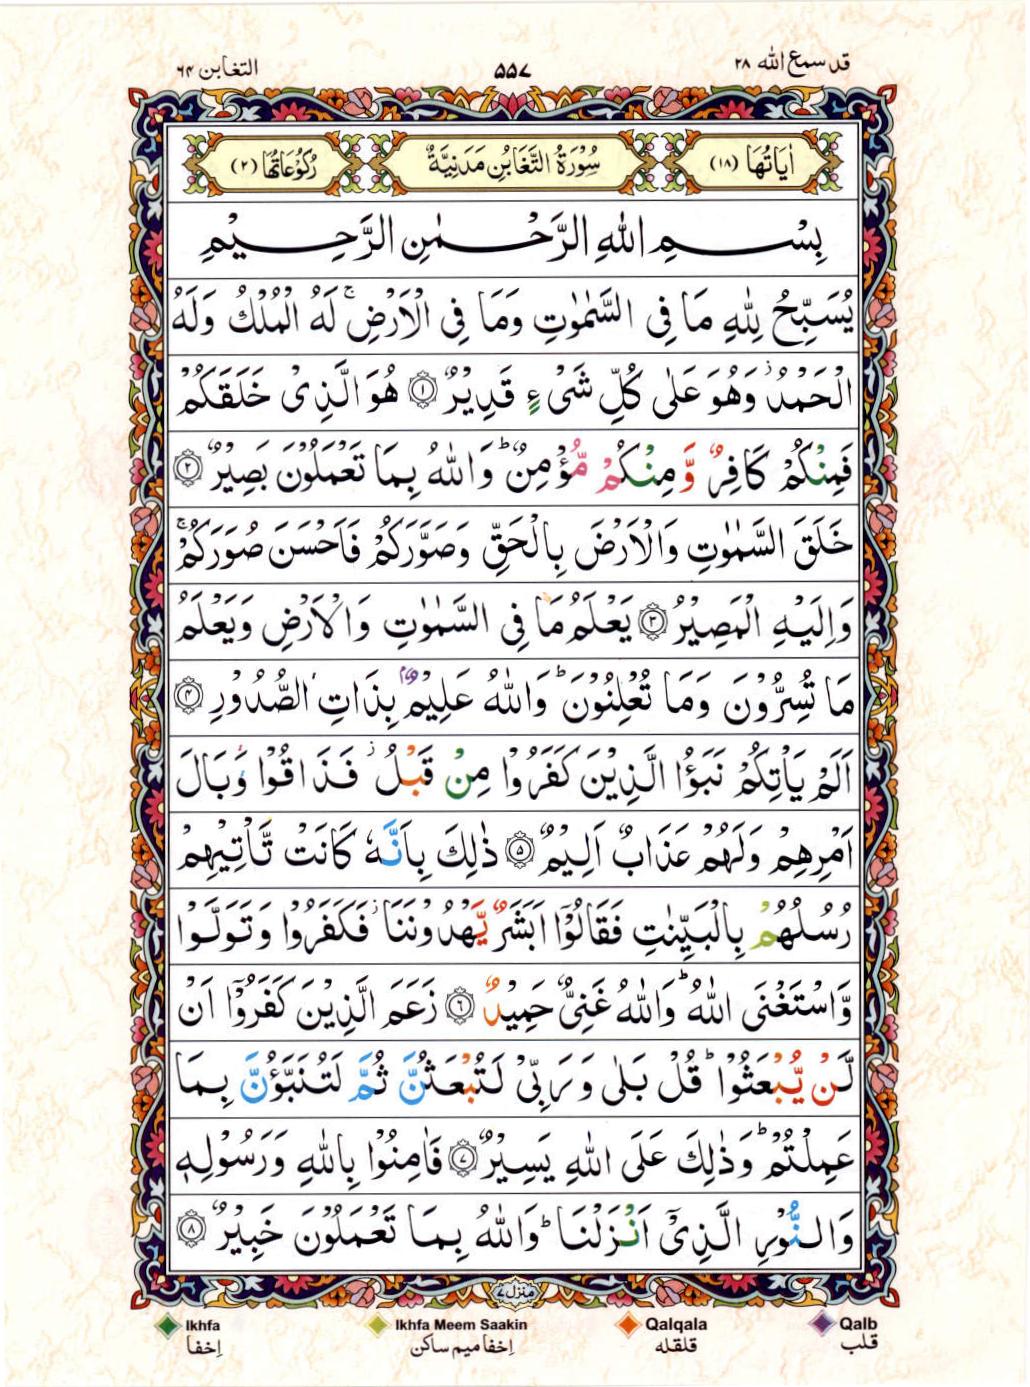 قد سمع الله ٢٨
۵۵۷
التغابن ٦۴
اٰیَاتُهَا (۱۸)
سُوْرَةُ التَّغَابُنِ مَدَنِيَّةٌ
رُكُوْعَاتُهَا (۲)
بِسْمِ اللهِ الرَّحْمٰنِ الرَّحِيْمِ
يُسَبِّحُ لِلّٰهِ مَا فِى السَّمٰوٰتِ وَمَا فِى الْاَرْضِ ۚ لَهُ الْمُلْكُ وَلَهُ
الْحَمْدُ ۡ وَهُوَ عَلٰى كُلِّ شَىْءٍ قَدِيْرٌ ﴿۱﴾ هُوَ الَّذِىْ خَلَقَكُمْ
فَمِنْكُمْ كَافِرٌ وَّمِنْكُمْ مُّؤْمِنٌ ؕ وَاللّٰهُ بِمَا تَعْمَلُوْنَ بَصِيْرٌ ﴿۲﴾
خَلَقَ السَّمٰوٰتِ وَالْاَرْضَ بِالْحَقِّ وَصَوَّرَكُمْ فَاَحْسَنَ صُوَرَكُمْ ۚ
وَاِلَيْهِ الْمَصِيْرُ ﴿۳﴾ يَعْلَمُ مَا فِى السَّمٰوٰتِ وَالْاَرْضِ وَيَعْلَمُ
مَا تُسِرُّوْنَ وَمَا تُعْلِنُوْنَ ؕ وَاللّٰهُ عَلِيْمٌۢ بِذَاتِ الصُّدُوْرِ ﴿۴﴾
اَلَمْ يَاْتِكُمْ نَبَؤُا الَّذِيْنَ كَفَرُوْا مِنْ قَبْلُ ۡ فَذَاقُوْا وَبَالَ
اَمْرِهِمْ وَلَهُمْ عَذَابٌ اَلِيْمٌ ﴿۵﴾ ذٰلِكَ بِاَنَّهٗ كَانَتْ تَّاْتِيْهِمْ
رُسُلُهُمْ بِالْبَيِّنٰتِ فَقَالُوْۤا اَبَشَرٌ يَّهْدُوْنَنَا ۡ فَكَفَرُوْا وَتَوَلَّوْا
وَّاسْتَغْنَى اللّٰهُ ؕ وَاللّٰهُ غَنِىٌّ حَمِيْدٌ ﴿۶﴾ زَعَمَ الَّذِيْنَ كَفَرُوْۤا اَنْ
لَّنْ يُّبْعَثُوْا ؕ قُلْ بَلٰى وَرَبِّىْ لَتُبْعَثُنَّ ثُمَّ لَتُنَبَّؤُنَّ بِمَا
عَمِلْتُمْ ؕ وَذٰلِكَ عَلَى اللّٰهِ يَسِيْرٌ ﴿۷﴾ فَاٰمِنُوْا بِاللّٰهِ وَرَسُوْلِهٖ
وَالنُّوْرِ الَّذِىْۤ اَنْزَلْنَا ؕ وَاللّٰهُ بِمَا تَعْمَلُوْنَ خَبِيْرٌ ﴿۸﴾
منزل ۷
Ikhfa
Ikhfa Meem Saakin
Qalqala
Qalb
إخفا
إخفا ميم ساكن
قلقله
قلب